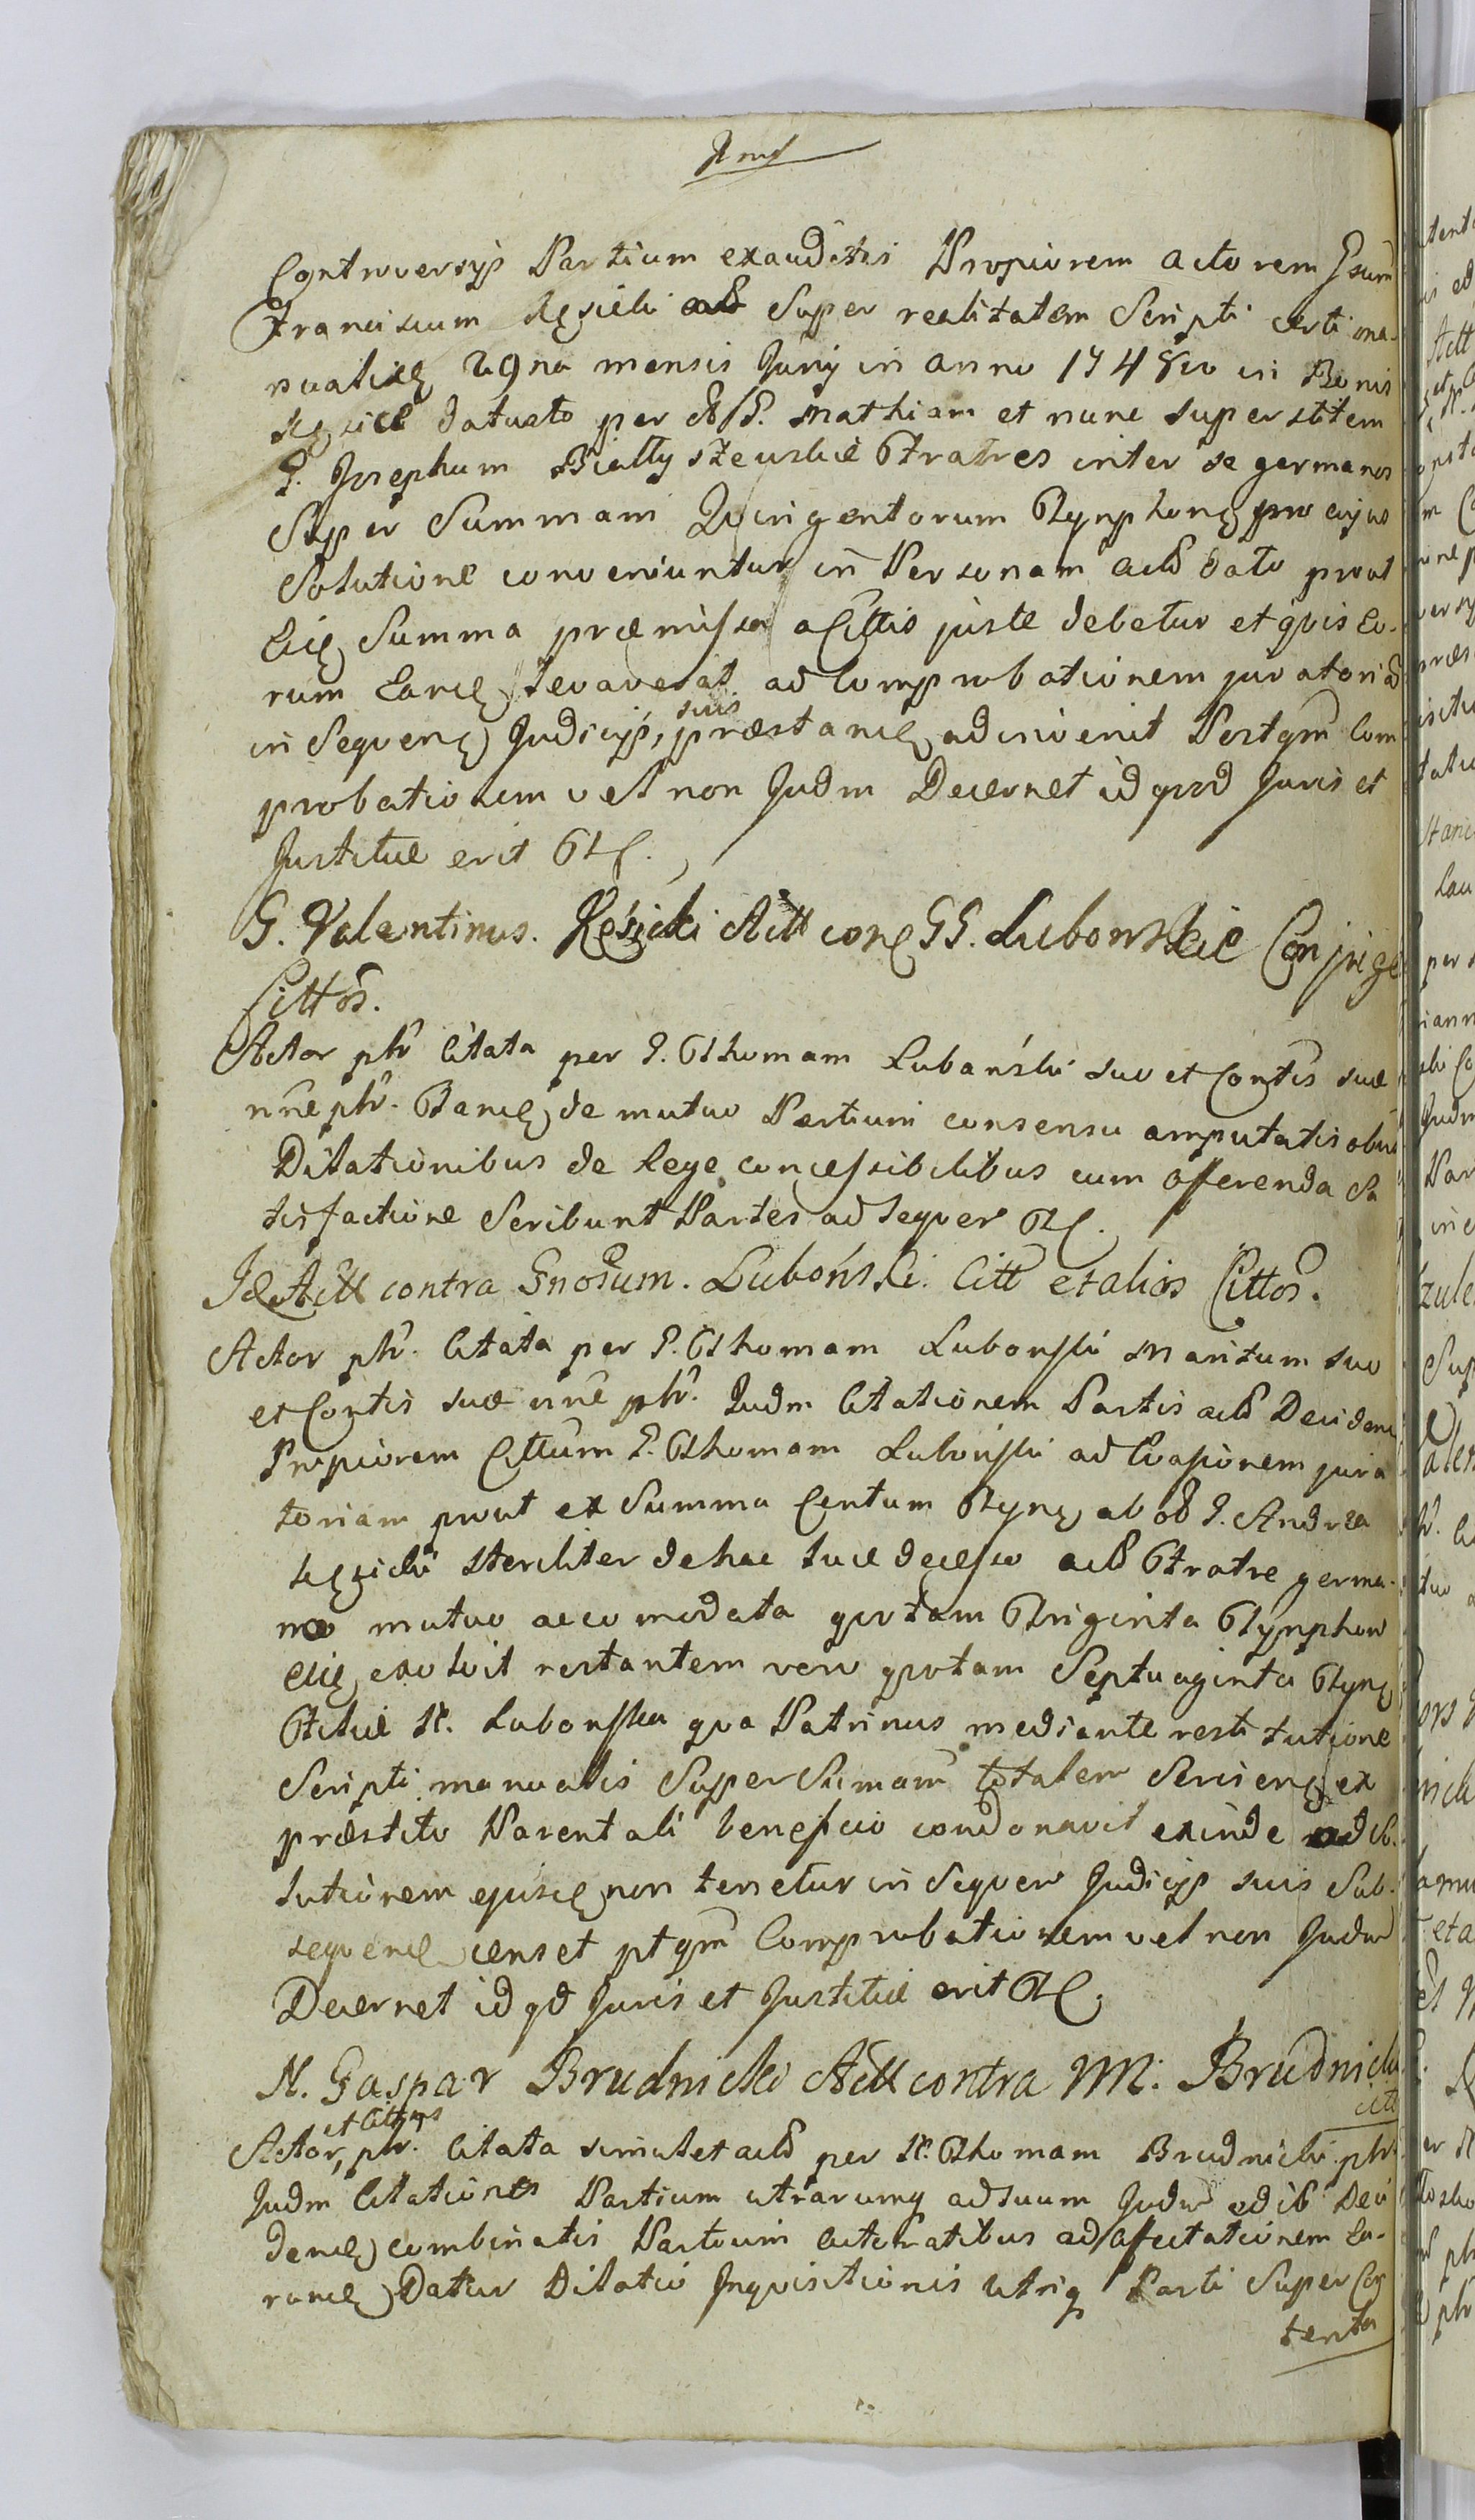 Controversys Partium exauditis Propiorem actorem Gsum
Franciscum Kęsicki Super realitatem Scripti certi ma-
nualis 29na mensis Juny in anno 1748vo in Bonis
Kęsice dato per P. Mathiam et nunc superstitem
P. Josephum Białłyszewskie Fratres inter se germanos
Super Summam Quingentorum Tynphone pro cujus
Solutione conveniuntur in Personam act dato prout
Eis Summa præmissa a Cittis juste debetur et qvis Eo-
rum Eam levaverat ad Comprobationem juratoria
in Seqven Judicys, suis præstan adinvenit Postqm Com
probationem vel non Judm Decernet id qvod Juris et
Justitiæ erit Et.
G. Valentinus. Kęsicki Actt con GG. Lubonskie Conjuge
Cittos.
Actor phr Citata per P. Thomam Lubański suo et Contis suæ
nne phr. Tan de mutuo Partium consensu amputatis obus
Dilationibus de Lege concessibilibus cum offerenda Sa
tisfactione Scribunt Partes ad seqven Et.
Id Actt contra Gnosum. Luboński. Citt et alios Cittos.
Actor phr. Citata per P. Thomam Lubonski Maritum suo
et Contis suæ nne phr. Judm Citationem Partis act Deciden
Propiorem Cittum P. Thomam Lubonski ad Evasionem jura
toriam prout ex Summa Centum Tyn ab ob P. Andrea
Kęsicki steriliter de hac luce decesso act Fratre germa-
no mutuo accomodata qvotam Triginta Tynphon
exolvit restantem vero qvotam Septuaginta Tyn
Filiæ N. Lubonska qva Patrinus mediante restitutione
Scripti manualis Super Sumam totalem Servien ex
præstito Parentali beneficio condonavit exinde ad So-
lutionem ejus non tenetur in Seqven Judicys suis Sub-
seqven censet ptqm Comprobationem vel non Judm
Decernet id qd Juris et Justitiæ erit Et.
N. Gaspar Brudnicki Actt contra M: Brudnicki
Citt
Actor, et Cittus phr. Citata simulet act per N. Thomam Brudnicki phr
Judm Citationes Partium utrarumq ad suum Judm adib Deci
den combinatis Partium Cito ad affectationem Ea-
run Datur Dilatio Inqvisitionis utriq Parti Super Con
tenta